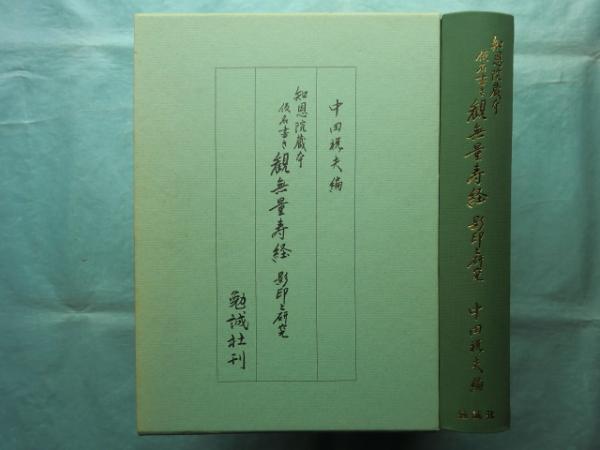 中田祝夫編
知恩院蔵本
仮名書き観無量寿経 影印と研究
勉誠社刊
知恩院蔵本
仮名書き観無量寿経 影印と研究 中田祝夫編
勉誠社